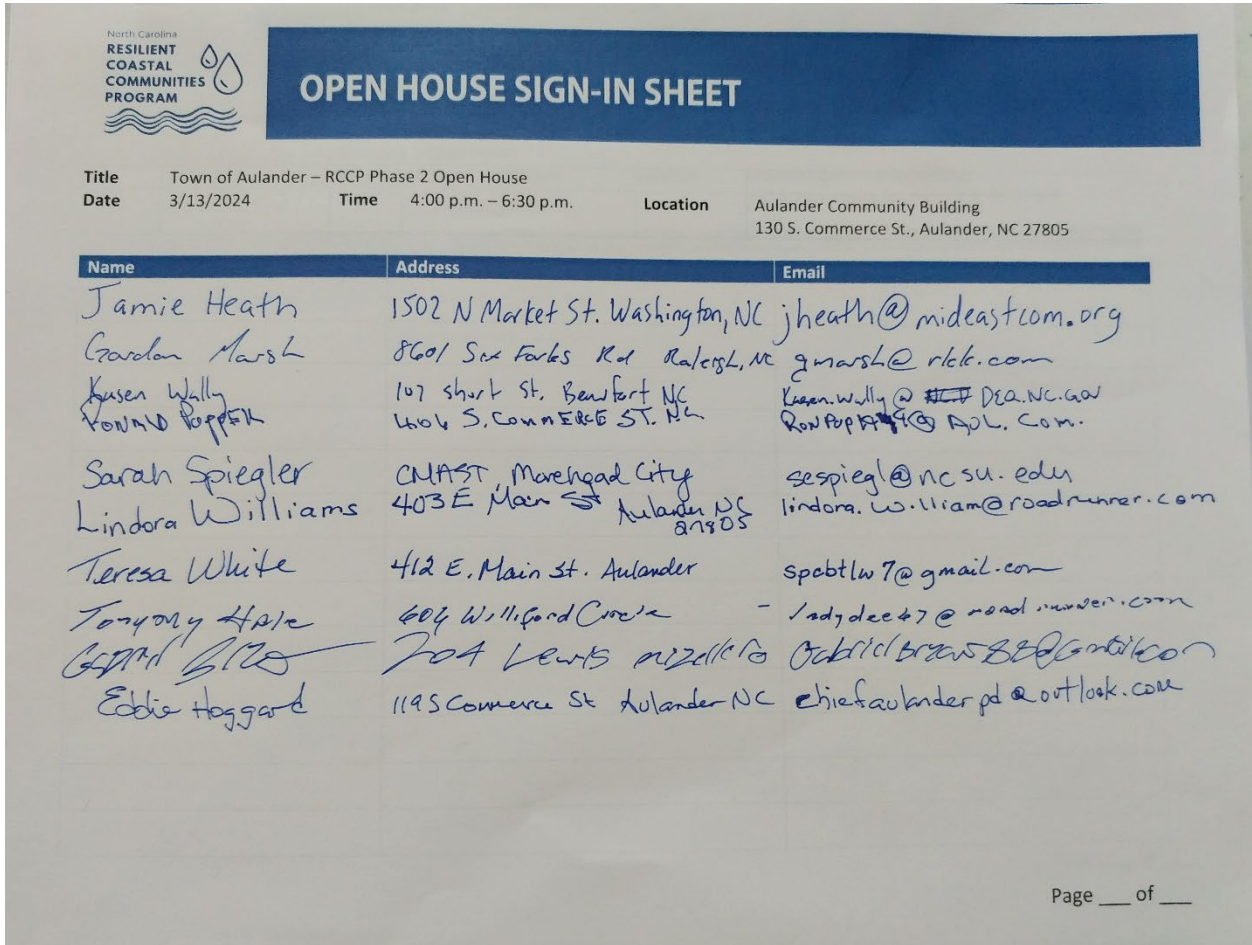 North Carolina
RESILIENT
COASTAL
COMMUNITIES
PROGRAM
OPEN HOUSE SIGN-IN SHEET
Title Town of Aulander – RCCP Phase 2 Open House
Date 3/13/2024 Time 4:00 p.m. – 6:30 p.m. Location Aulander Community Building
130 S. Commerce St., Aulander, NC 27805
Name Address Email
Jamie Heath 1502 N Market St. Washington, NC jheath@mideastcom.org
Gordon Marsh 8601 Six Forks Rd Raleigh, NC gmarsh@rkk.com
Wally 107 Short St. Beaufort NC DEQ.NC.GOV
406 S. COMMERCE ST. NC AOL.Com.
Sarah Spiegler CMAST, Morehead City sespiegl@ncsu.edu
Lindora Williams 403 E Main St Aulander NC lindora.william@roadrunner.com
27805
Teresa White 412 E. Main St. Aulander spcbtlw7@gmail.com
604 Williford Circle
204 Lewis
Eddie Hoggard 119 S Commerce St Aulander NC chiefaulanderpd@outlook.com
Page ___ of ___